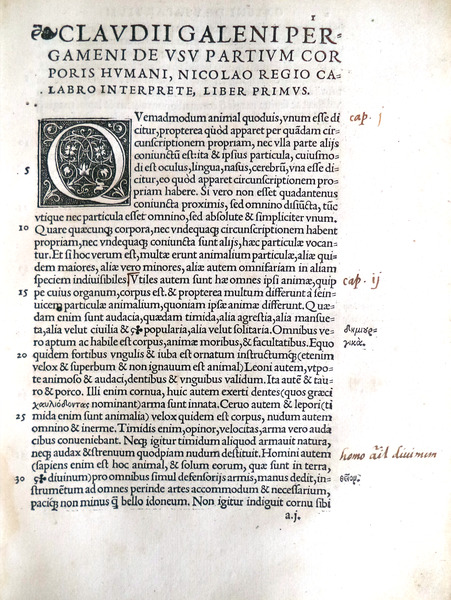 1
CLAVDII GALENI PER-
GAMENI DE VSV PARTIVM COR
PORIS HVMANI, NICOLAO REGIO CA-
LABRO INTERPRETE, LIBER PRIMVS.
QVemadmodum animal quoduis, vnum esse di
citur, propterea quòd apparet per quãdam cir-
cunscriptionem propriam, nec vlla parte alijs
coniunctũ est: ita & ipsius particula, cuiusmo-
di est oculus, lingua, nasus, cerebrũ, vna esse di-
5
citur, eo quòd apparet circunscriptionem pro-
priam habere. Si vero non esset quadantenus
coniuncta proximis, sed omnino disiũcta, tũc
vtique nec particula esset omnino, sed absolute & simpliciter vnum.
10 Quare quæcunq; corpora, nec vndequaq; circunscriptionem habent
propriam, nec vndequaq; coniuncta sunt alijs, hæc particulæ vocan-
tur. Et si hoc verum est, multæ erunt animalium particulæ, aliæ qui-
dem maiores, aliæ vero minores, aliæ autem omnifariam in aliam
speciem indiuisibiles. Vtiles autem sunt hæ omnes ipsi animæ, quip
15 pe cuius organum, corpus est. & propterea multum differunt à sein-
uicem particulæ animalium, quoniam ipsæ animæ differunt. Quæ-
dam enim sunt audacia, quædam timida, alia agrestia, alia mansue-
ta, alia velut ciuilia & popularia, alia velut solitaria. Omnibus ve-
ro aptum ac habile est corpus, animæ moribus, & facultatibus. Equo
20 quidem fortibus vngulis & iuba est ornatum instructumq; (etenim
velox & superbum & non ignauum est animal) Leoni autem, vtpo-
te animoso & audaci, dentibus & vnguibus validum. Ita autẽ & tau-
ro & porco. Illi enim cornua, huic autem exerti dentes (quos græci
χαυλιόδοντας nominant) arma sunt innata. Ceruo autem & lepori (ti
25 mida enim sunt animalia) velox quidem est corpus, nudum autem
omnino & inerme. Timidis enim, opinor, velocitas, arma vero auda
cibus conueniebant. Neq; igitur timidum aliquod armauit natura,
neq; audax & strenuum quodpiam nudum destituit. Homini autem
(sapiens enim est hoc animal, & solum eorum, quæ sunt in terra,
30 diuinum) pro omnibus simul defensorijs armis, manus dedit, in-
strumẽtum ad omnes perinde artes accommodum & necessarium,
paciq; non minus q̃ bello idoneum. Non igitur indiguit cornu sibi
a.j.
cap. j
cap. ij
δημιουρ-
γικάς.
homo aĩal diuinum
θεῖορ.